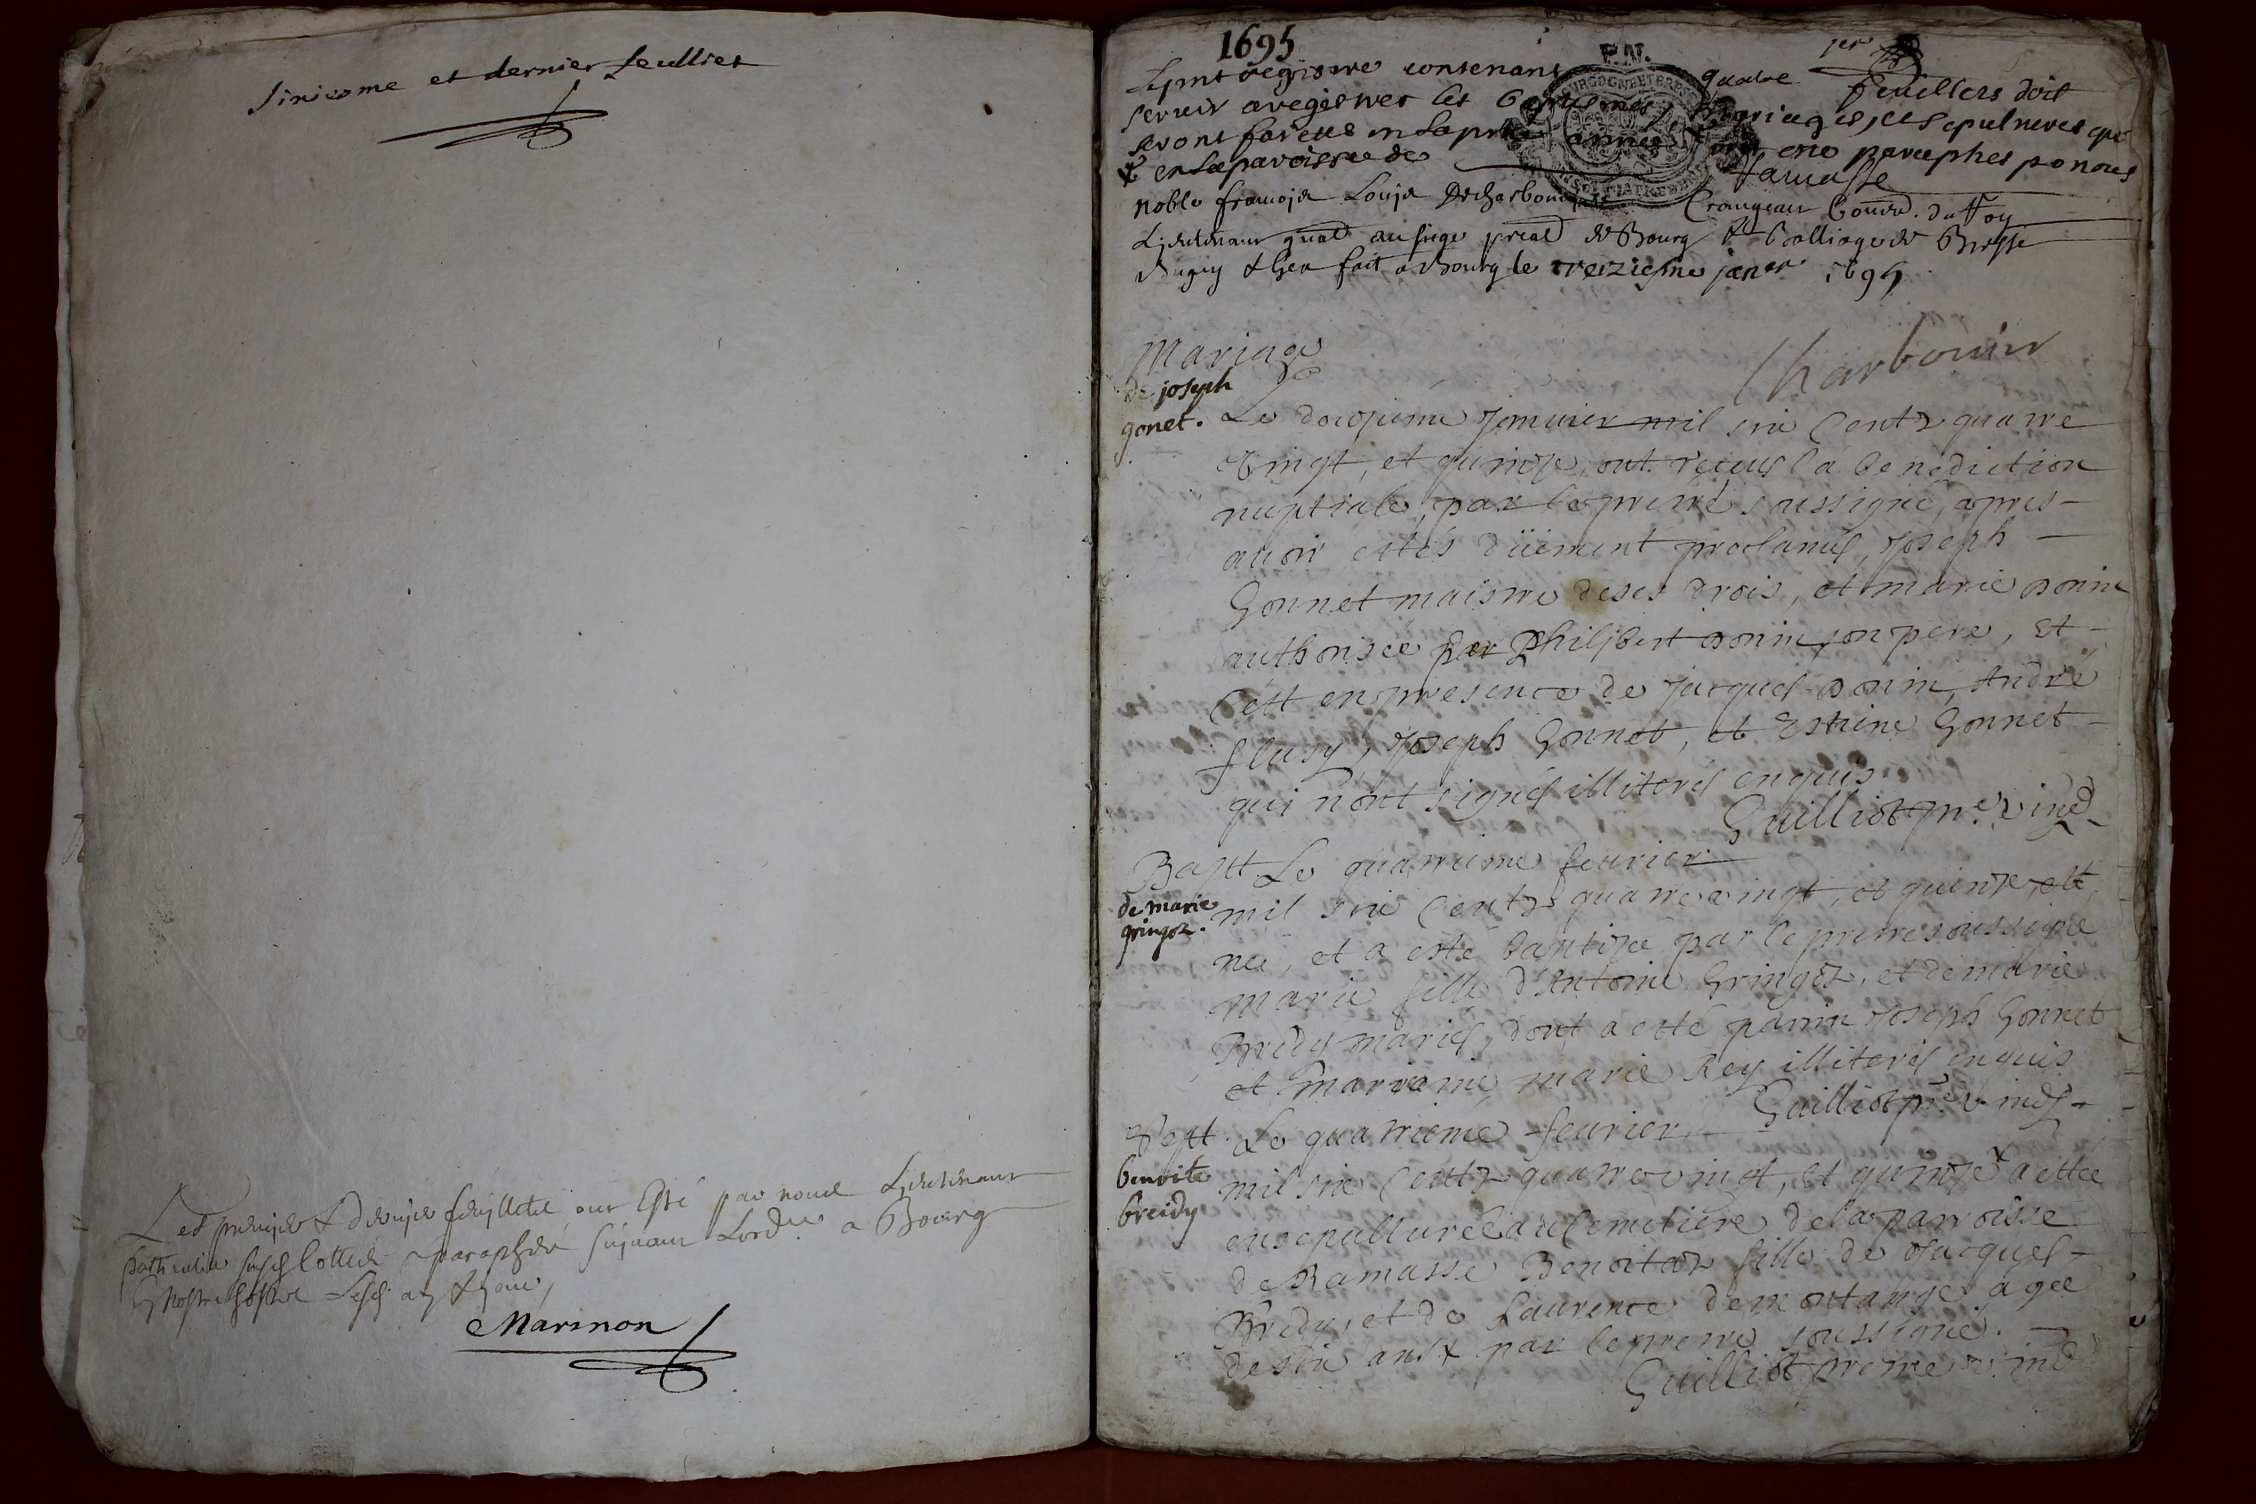 sixiesme et dernier feulliet
Les premier & dernier feuilletz ont Esté par nous Lieutenant
particulier paraphés suivant Lord.ce a Bourg
Marinon
1695
1er
Le pnt registre contenant quatre feuillers doit
servir a registrer les baptesmes, Mariages, et sepultures qui
seront faictes en la pnte année
& en la paroisse de Ramasse
noble françois Louis Decharbonnier Crangeac Conser. du Roy
Lieutenant gnal au siege preal de Bourg & balliage de Bresse
Bugey & Gex fait a Bourg le treiziesme janer 1695
Charbonier
Mariage
de joseph
gonet.
Le douzieme Januier mil six Centz quatre
Vingt, et quinze, ont receus la benediction
nuptiale, par le pretre soussigné, apres
auoir estés düement proclamés, Joseph
Gonnet maistre de ses drois, et marie donin
authorisée par Philibert donin son pere, et
Cett en presence de Jacques donin, André
flusy, Joseph Gonnet, et Estiene Gonnet
qui n'ont signés illiterés enquis
Guilliot p.re vind
Bapt. Le quatrieme feurier
de marie
gringoz.
mil six Centz quatre vingt, et quinze est
née, et a esté baptizée par le pretre soussigné
marie fille d'Antoine Gringoz, et de marie
Bredy mariés, dont a esté parrin Joseph Gonnet
et marreine marie Rey illiterés enquis
Guilliot p.re vind
Sept. Le quatrieme feurier
benoite
breidy
mil six Centz quatre vingt, et quinze a estée
ensepulturée au Cemetiere de la parroisse
de Ramasse Benoitte fille de Jacques
Bredy, et de Laurence demontange agée
de six ans & par le pretre soussigné.
Guilliot pretre vind